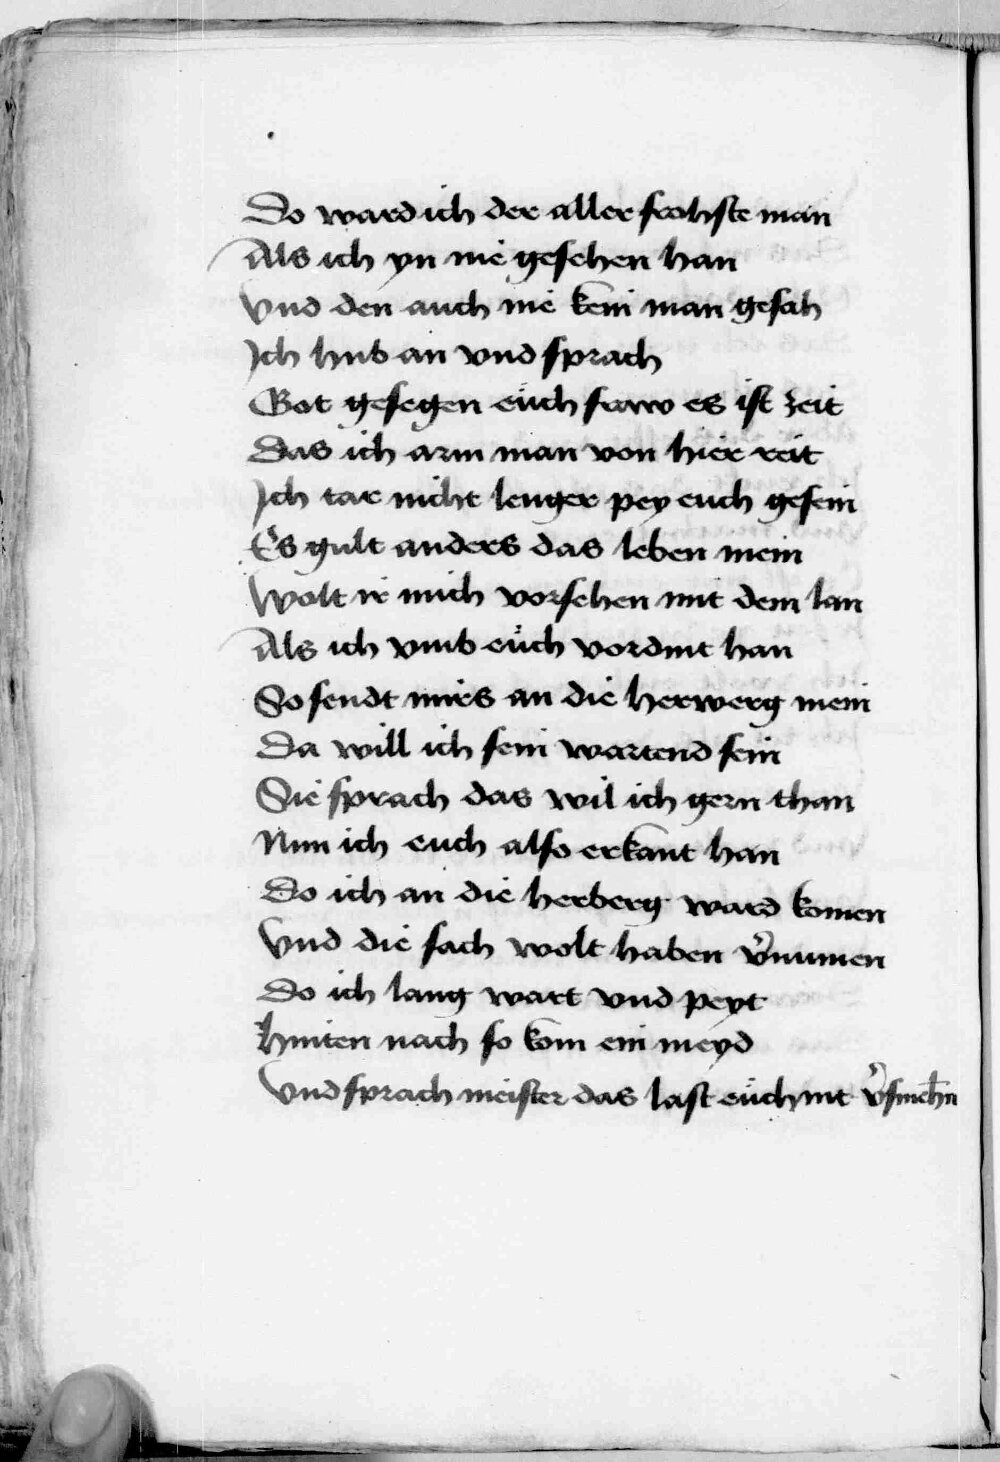 Do ward ich der aller frohste man
Als ich yn nie gesehen han
Vnd den auch nie kein man gesah
Ich hub an vnd sprach
Got gesegen euch fraw es ist zeit
Das ich arm man von hier reit
Ich tar nicht lenger pey euch gesein
Es gult anders das leben mein
Wolt ir mich vorsehen mit dem lan
Als ich vmb euch vordint han
So sendt mirs an die herwerg mein
Da will ich sein wartend sein
Sie sprach das wil ich gern than
Nun ich euch also erkant han
Do ich an die herberg ward komen
Vnd die sach wolt haben v̉numen
Do ich lang wart vnd peyt
Hinten nach so kom ein meyd
Vnd sprach meister das last euch nit v̉smech̄n